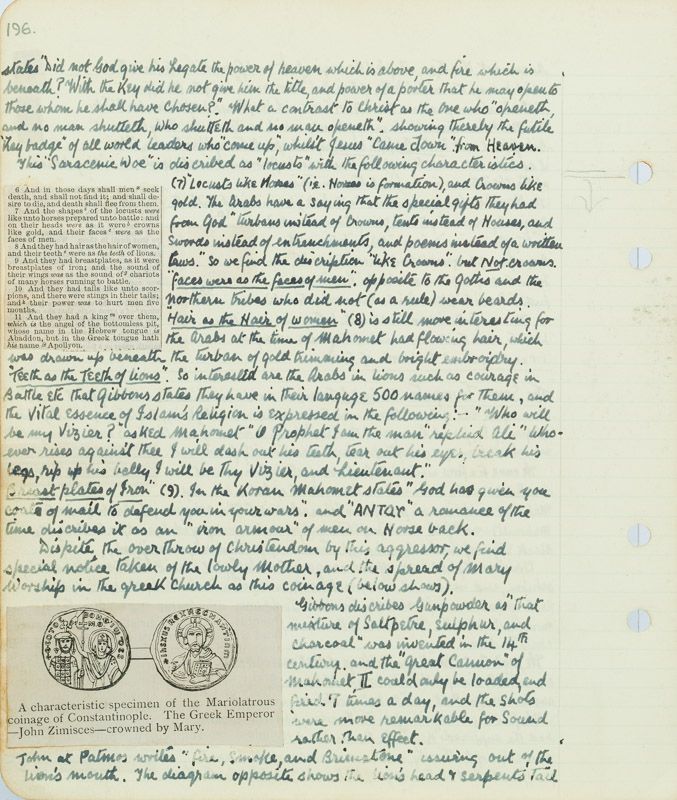 196.
states "Did not God give his Legate the power of heaven which is above, and fire which is
beneath? With the Key did he not give him the title, and power of a porter that he may open to
those whom he shall have chosen?." What a contrast to Christ as the One who "openeth,
and no man shutteth, who shutteth and no man openeth". showing thereby the futile
"Key badge" of all world leaders who "come up, whilst Jesus "Came down" from Heaven.
This "Saracenic Woe" is discribed as "locusts" with the following characteristics.
6 And in those days shall men seek
death, and shall not find it; and shall de-
sire to die, and death shall flee from them.
7 And the shapes of the locusts were
like unto horses prepared unto battle; and
on their heads were as it were crowns
like gold, and their faces were as the
faces of men.
8 And they had hair as the hair of women,
and their teeth were as the teeth of lions.
9 And they had breastplates, as it were
breastplates of iron; and the sound of
their wings was as the sound of chariots
of many horses running to battle.
10 And they had tails like unto scor-
pions, and there were stings in their tails;
and their power was to hurt men five
months.
11 And they had a king over them,
which is the angel of the bottomless pit,
whose name in the Hebrew tongue is
Abaddon, but in the Greek tongue hath
his name Apollyon.
(7) "Locusts like Horses" (i.e. Horses in formation), and Crowns like
gold. The Arabs have a saying that the special gifts they had
from God "turbans instead of Crowns, tents instead of Houses, and
Swords instead of entrenchments, and poems instead of a written
laws." So we find the discription "like Crowns". but Not crowns.
"faces were as the faces of men". opposite to the Goths and the
Northern tribes who did not (as a rule) wear beards.
"Hair as the Hair of women" (8) is still more interesting for
the Arabs at the time of Mahomet had flowing hair, which
was drawn up beneath the turban of gold trimming and bright embroidry.
"Teeth as the Teeth of lions". So interested are the Arabs in lions such as courage in
Battle etc that Gibbons states they have in their languge 500 names for them, and
the Vital essence of Islam's Religion is expressed in the following:- "Who will
be my Vizier?" asked Mahomet "O Prophet I am the man "replied Ali" Who-
ever rises against thee I will dash out his teeth, tear out his eyes, break his
legs, rip up his belly I will be thy Vizier, and Lieutenant."
"Breast plates of Iron" (9). In the "Koran Mahomet states" God has given you
coats of mail to defend you in your wars". and "ANTAR" a romance of the
time discribes it as an "iron armour" of men on Horse back.
Dispite, the overthrow of Christendom by this aggressor, we find
special notice taken of the lowly Mother, and the spread of Mary
Worship in the greek Church as this coinage (below shows).
A characteristic specimen of the Mariolatrous
coinage of Constantinople. The Greek Emperor
—John Zimisces—crowned by Mary.
Gibbons discribes Gunpowder as "that
mixture of Saltpetre, Sulphur, and
Charcoal" was invented in the 14th
century. and the "Great Cannon" of
Mahomet II could only be loaded, and
fired 7 times a day, and the Shots
were more remarkable for Sound
rather than effect.
John at Patmos writes "fire, Smoke, and Brimstone" issuing out of the
lion's mouth. The diagram opposite shows the lion's head & serpents tail